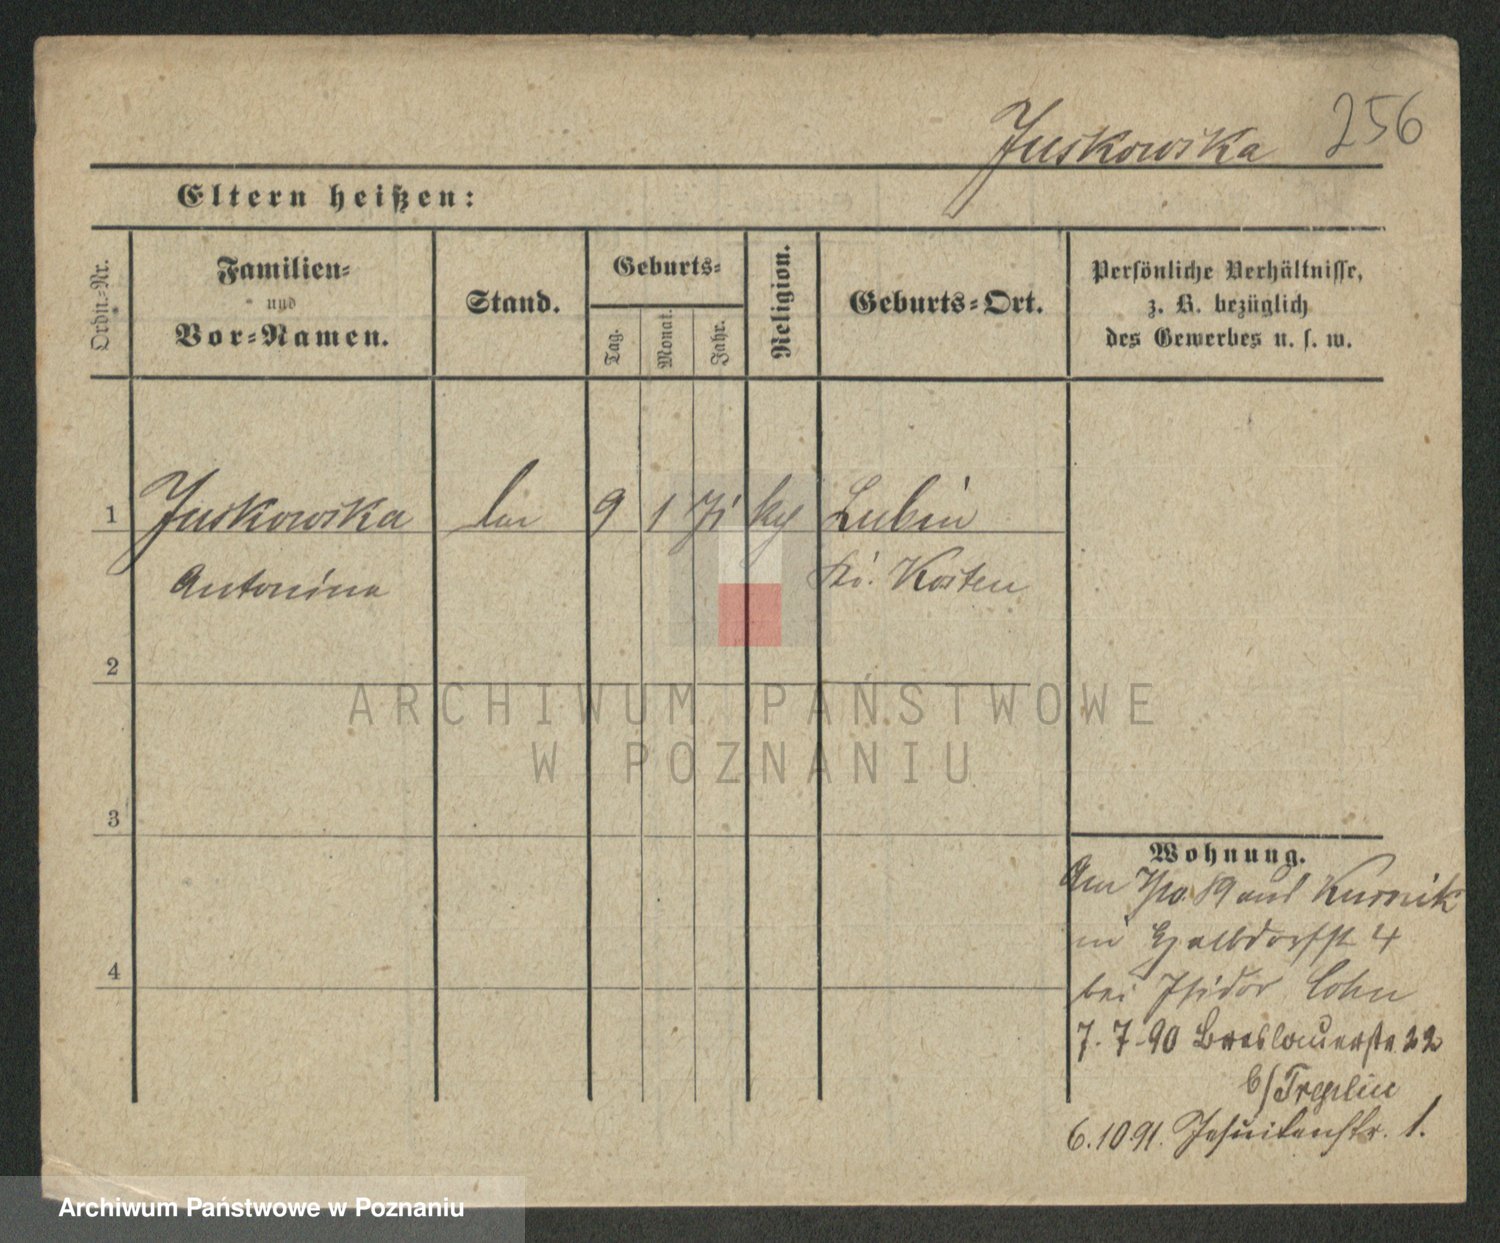 256
Juskowska
Eltern heißen:
Ordn.-Nr.
Familien-
und
Vor-Namen.
Stand.
Geburts-
Tag.
Monat.
Jahr.
Religion.
Geburts-Ort.
Persönliche Verhältnisse,
z. B. bezüglich
des Gewerbes u. s. w.
1 Juskowska 9 1 71 Lubin
Antonina Kr. Kosten
2
3
4
ARCHIWUM PAŃSTWOWE
W POZNANIU
Wohnung.
Am 89 aus Kurnik
in Halbdorfst 4
bei Isidor Cohn
7.7.90 Breslauerstr 22
b/Treplin
6.10.91. Jesuitenstr. 1.
Archiwum Państwowe w Poznaniu